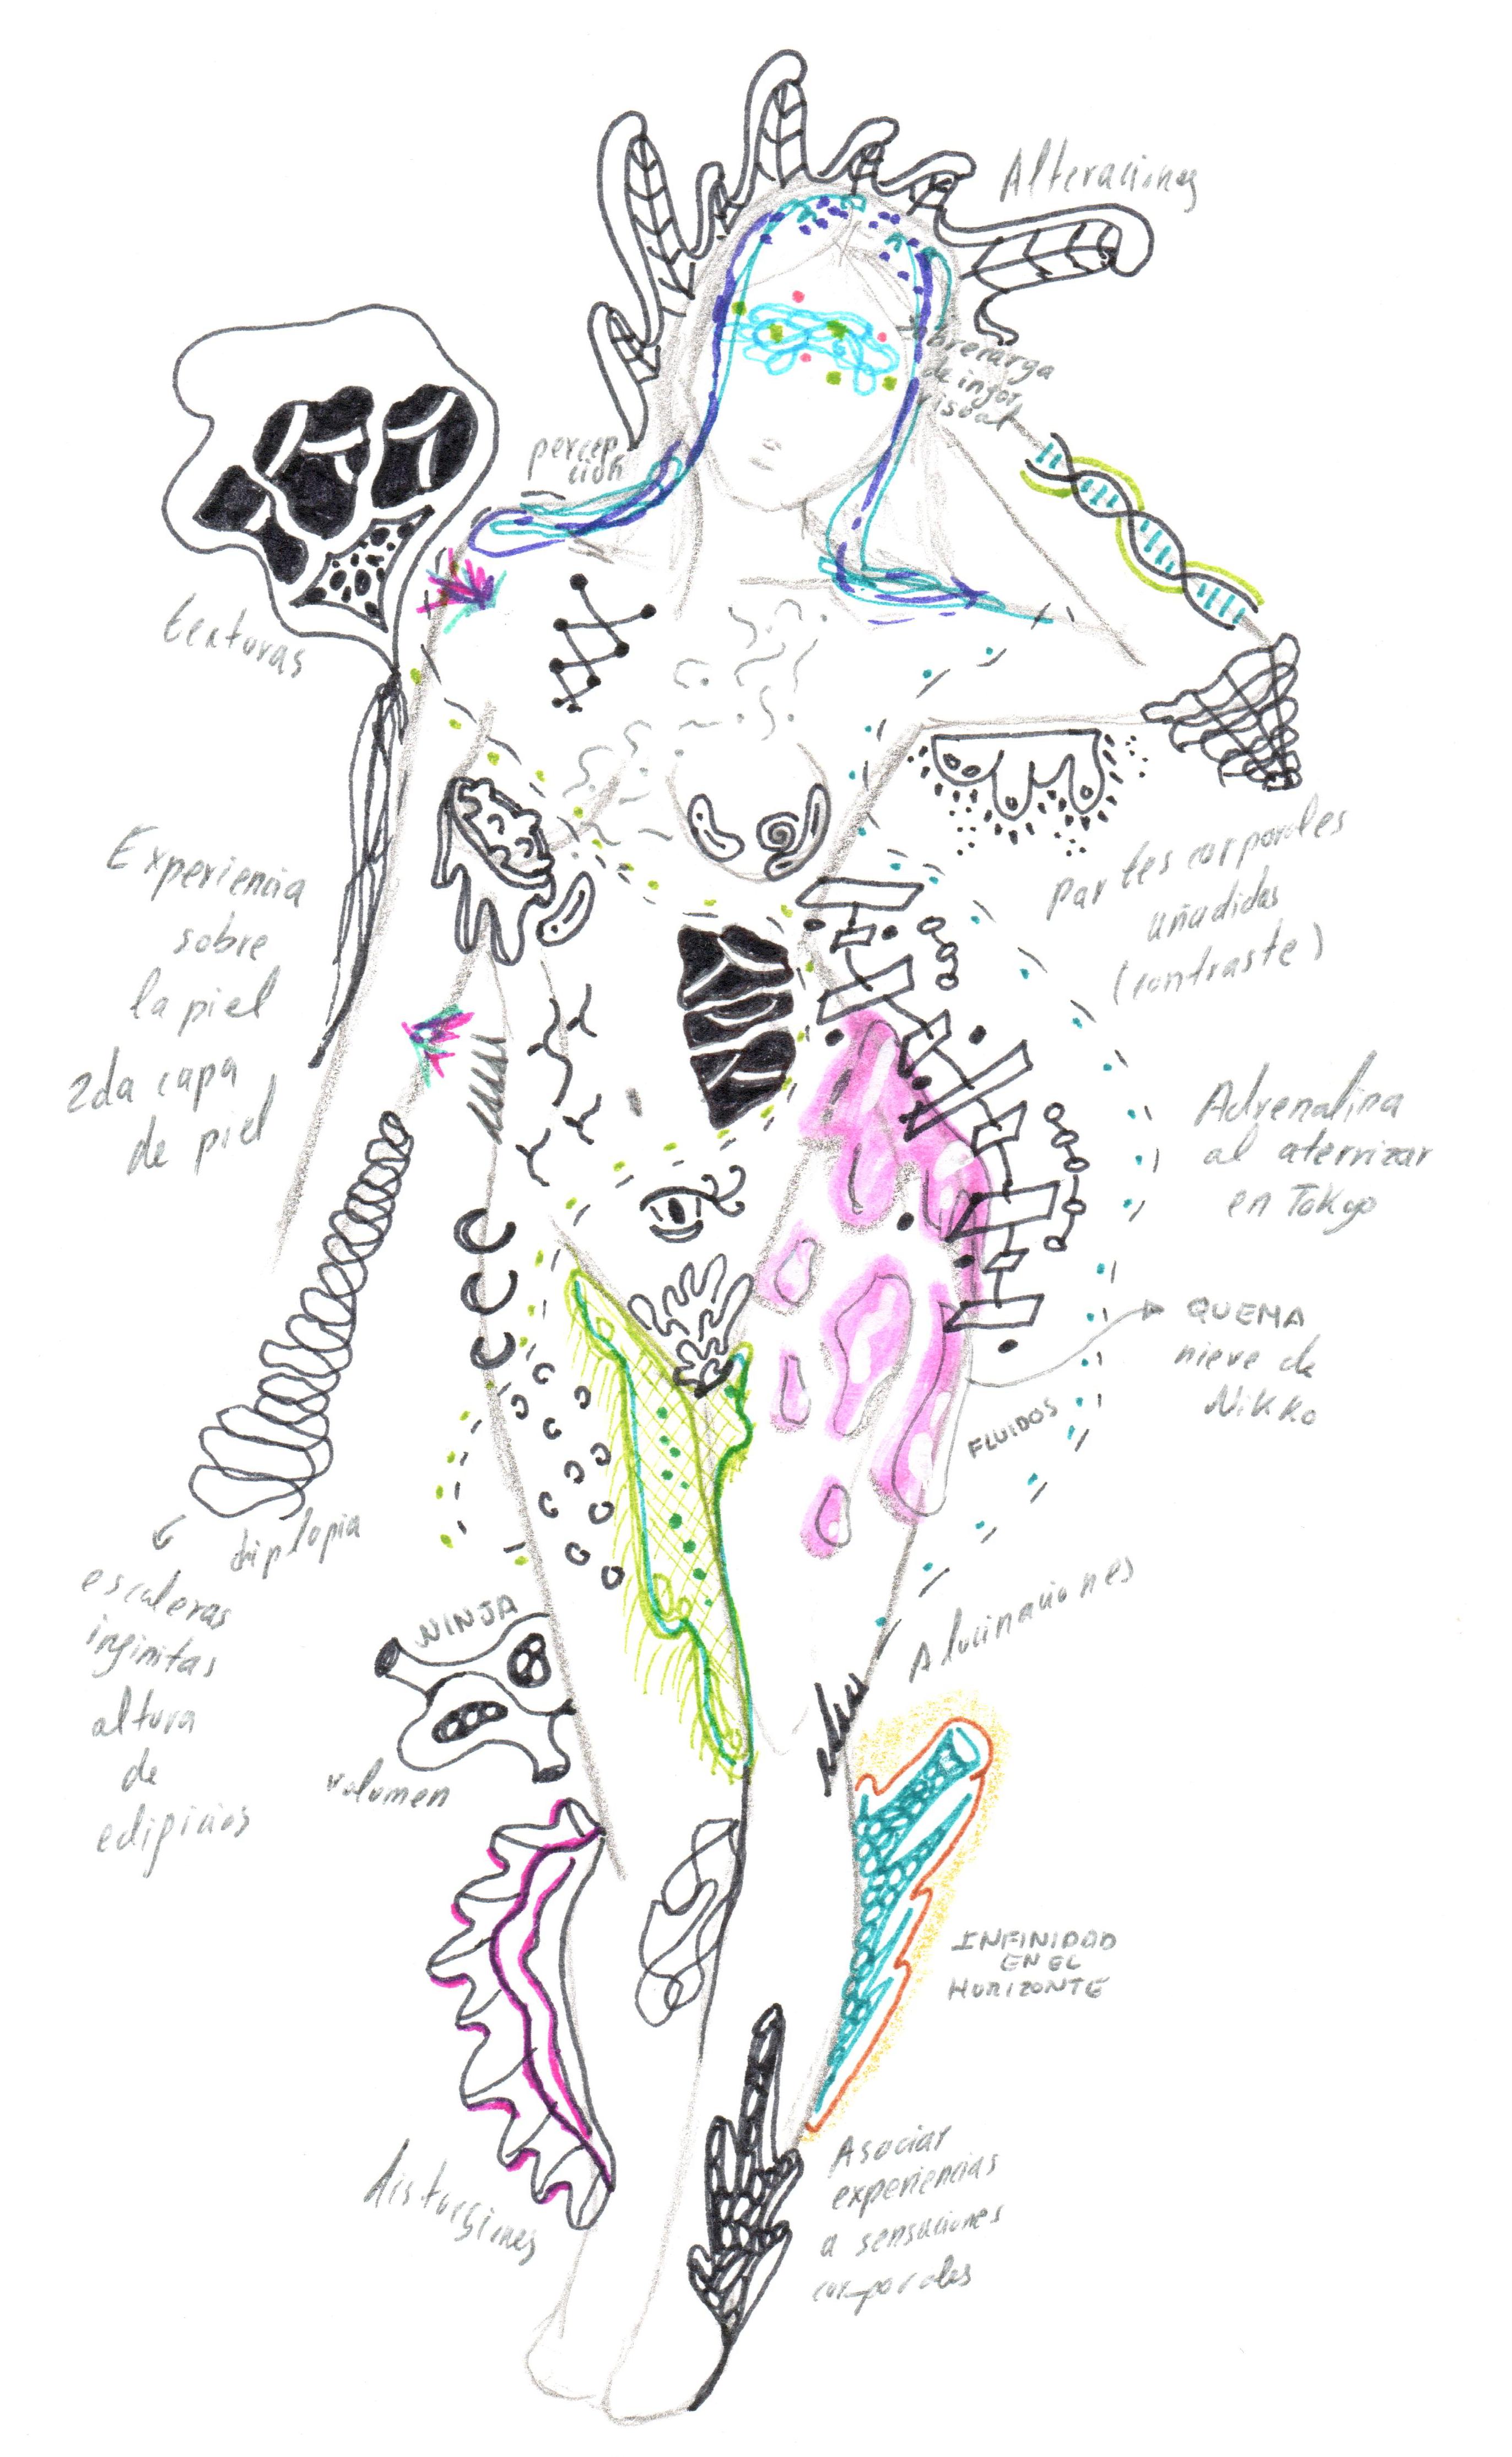 Alteraciones
brecarga
de infor
visual
percep
ción
texturas
Experiencia
sobre
la piel
2da capa
de piel
partes corporales
añadidas
(contraste)
Adrenalina
al aterrizar
en Tokyo
QUEMA
nieve de
Nikko
FLUIDOS
diplopia
escaleras
infinitas
altura
de
edificios
Alucinaciones
NINJA
volumen
INFINIDAD
EN EL
HORIZONTE
distorsiones
Asociar
experiencias
a sensaciones
corporales